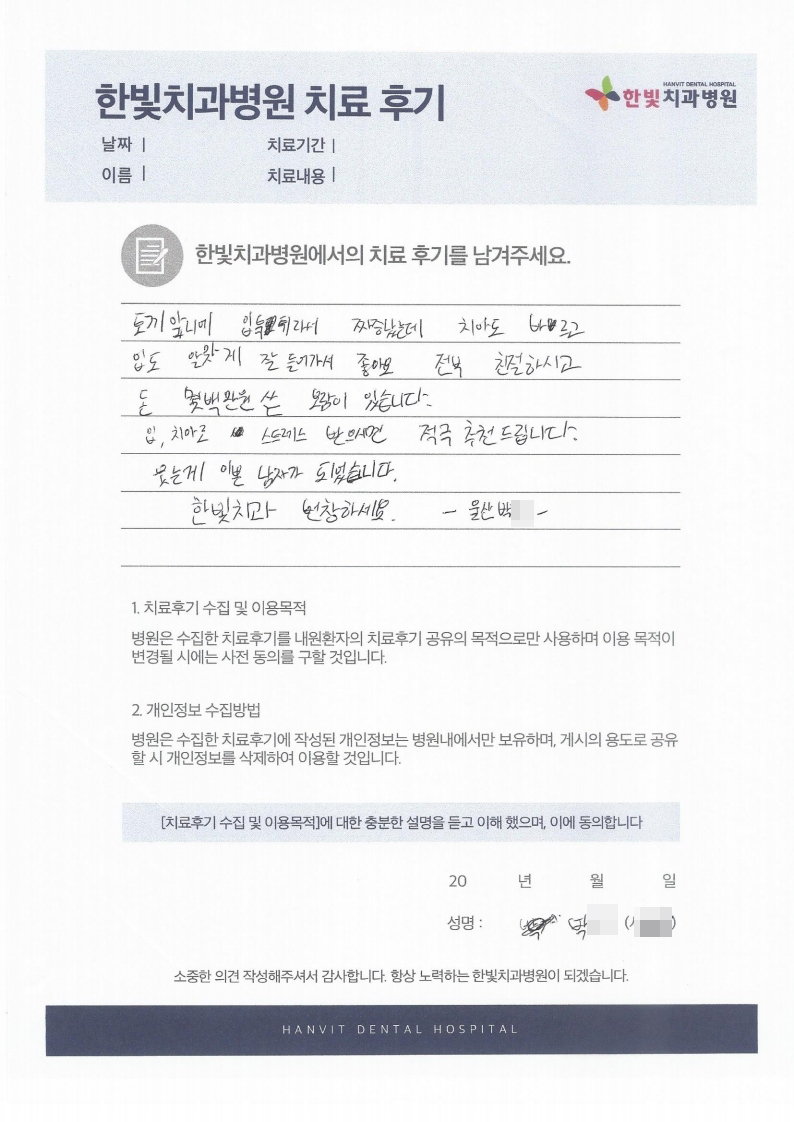 한빛치과병원 치료 후기
HANVIT DENTAL HOSPITAL
한빛치과병원
날짜 |
치료기간 |
이름 |
치료내용 |
한빛치과병원에서의 치료 후기를 남겨주세요.
토끼앞니에 입툭튀라서 짜증났는데 치아도 바르고
입도 알맞게 잘 들어가서 좋아요 전부 친절하시고
돈 몇백만원 쓴 보람이 있습니다.
입, 치아로 스트레스 받으시면 적극 추천드립니다.
웃는게 이쁜 남자가 되었습니다.
한빛치과 번창하세요. - 울산 박 -
1. 치료후기 수집 및 이용목적
병원은 수집한 치료후기를 내원환자의 치료후기 공유의 목적으로만 사용하며 이용 목적이
변경될 시에는 사전 동의를 구할 것입니다.
2. 개인정보 수집방법
병원은 수집한 치료후기에 작성된 개인정보는 병원내에서만 보유하며, 게시의 용도로 공유
할 시 개인정보를 삭제하여 이용할 것입니다.
[치료후기 수집 및 이용목적]에 대한 충분한 설명을 듣고 이해 했으며, 이에 동의합니다
20 년 월 일
성명 : 박 ( )
소중한 의견 작성해주셔서 감사합니다. 항상 노력하는 한빛치과병원이 되겠습니다.
HANVIT DENTAL HOSPITAL